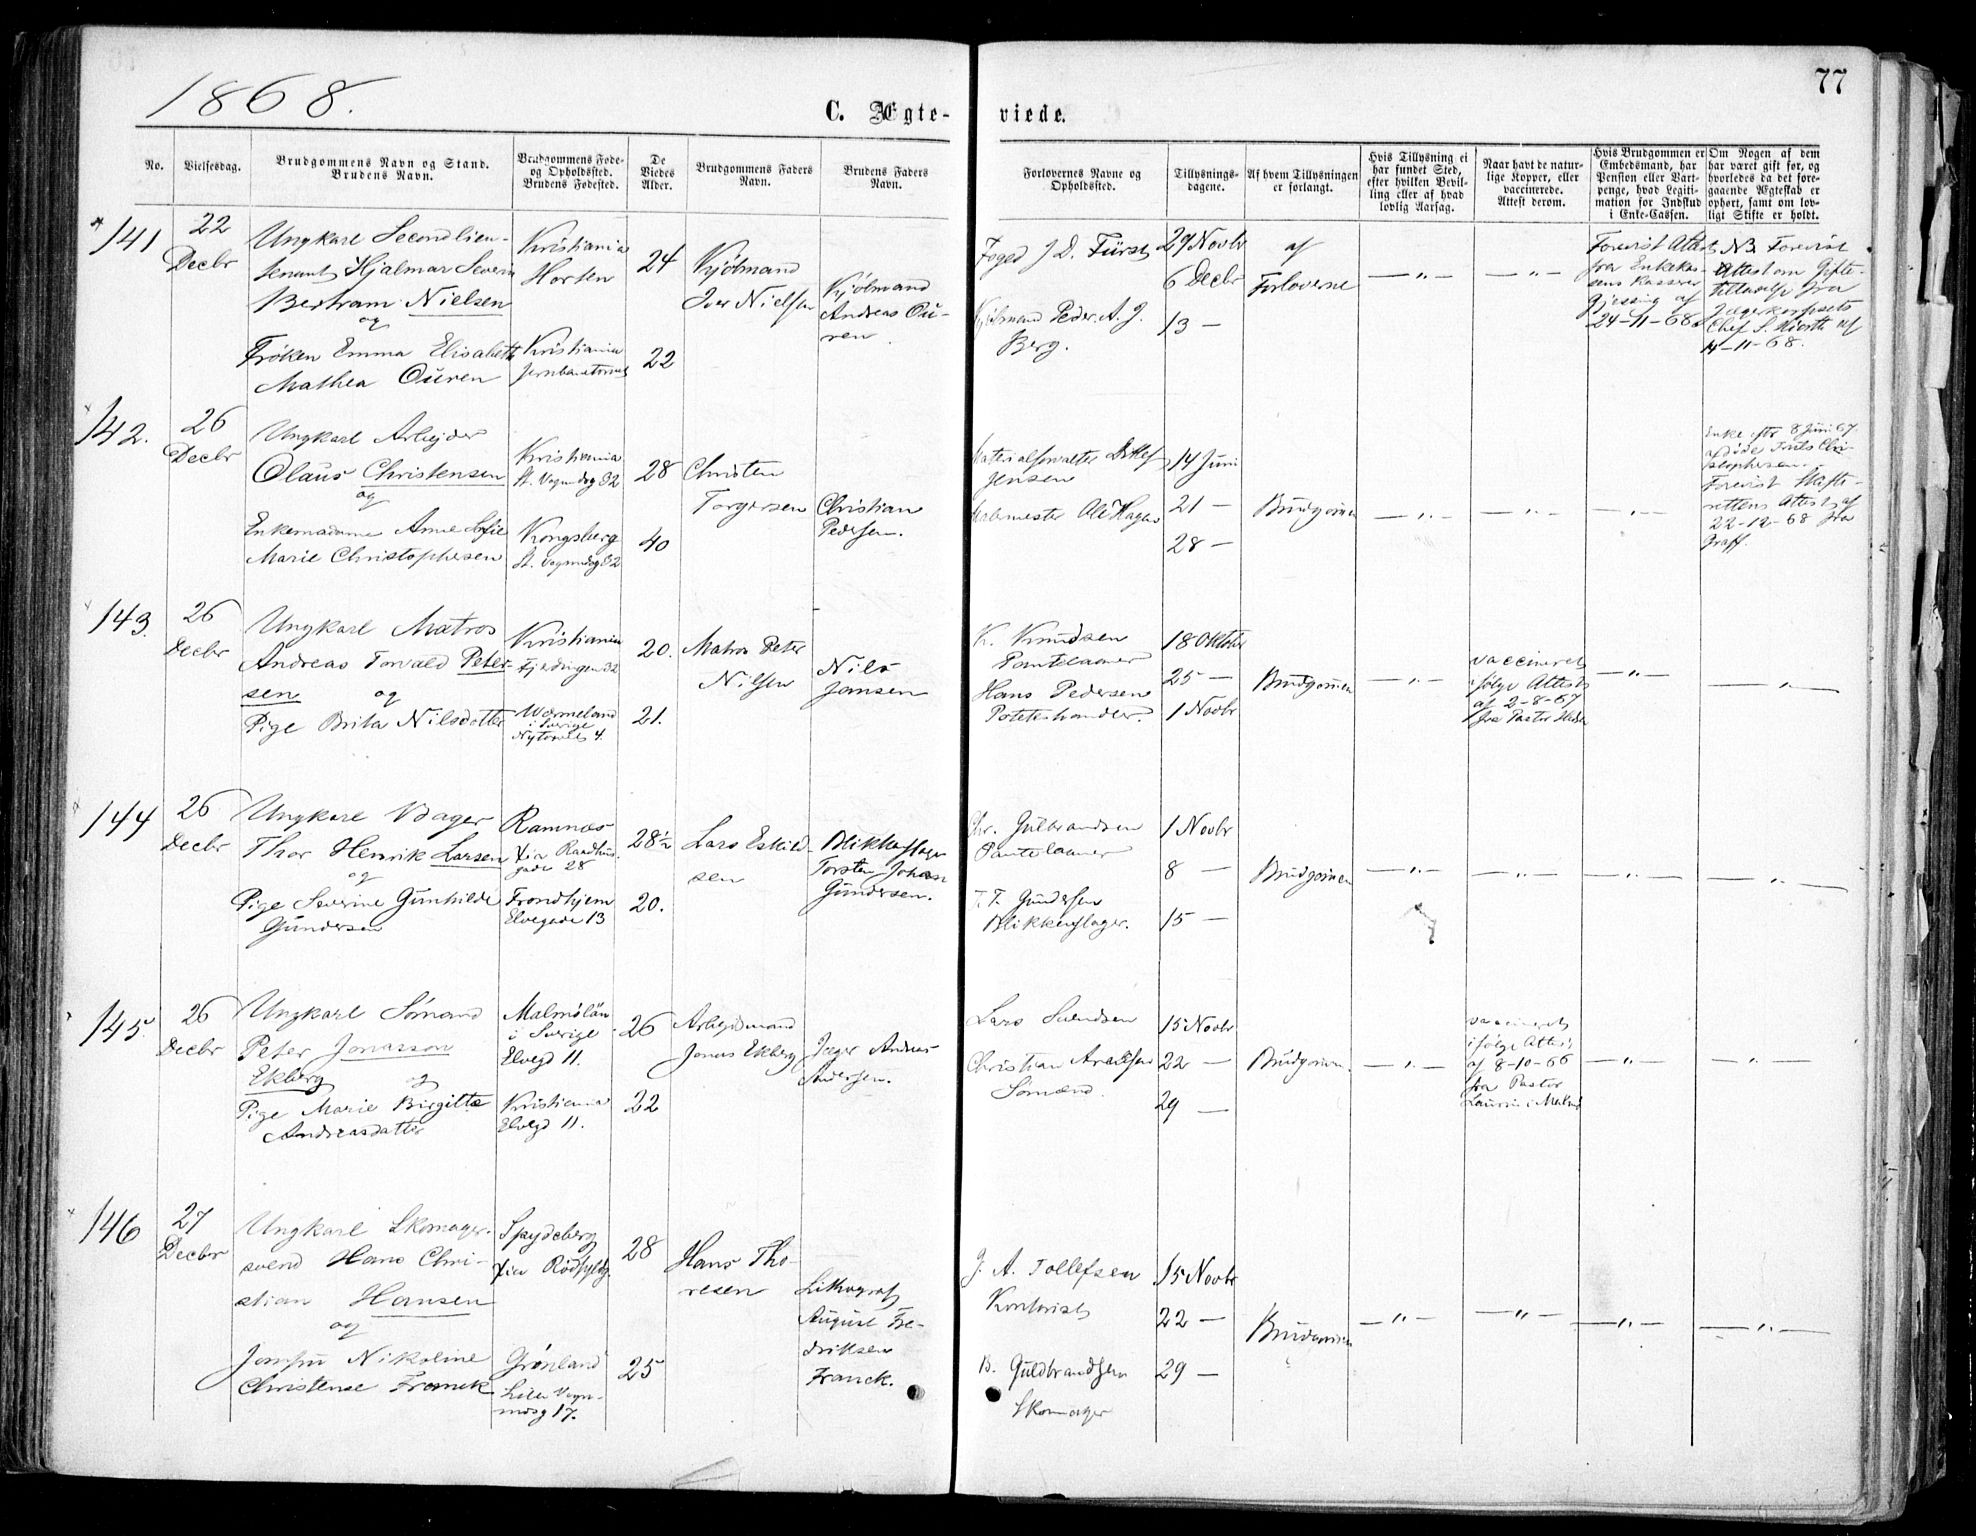 1868.
77
C. Ægte-
viede.
No.
Vielsesdag.
Brudgommens Navn og Stand.
Brudens Navn.
Brudgommens Føde-
og Opholdssted.
Brudens Fødested.
De
Viedes
Alder.
Brudgommens Faders
Navn.
Brudens Faders
Navn.
Forlovernes Navne og
Opholdssted.
Tillysnings-
dagene.
Af hvem Tillysningen
er forlangt.
Hvis Tillysning ei
har fundet Sted,
efter hvilken Bevil-
ling eller af hvad
lovlig Aarsag.
Naar havt de natur-
lige Kopper, eller
vaccinerede.
Attest derom.
Hvis Brudgommen er
Embedsmand, har
Pension eller Vart-
penge, hvad Legiti-
mation for Indskud
i Enke-Cassen.
Om Nogen af dem
har været gift før, og
hvorledes da det fore-
gaaende Ægteskab er
ophørt, samt om lov-
ligt Skifte er holdt.
141
22
Decbr
Ungkarl Secondlieu-
tenant Hjalmar Severin
Bertram Nielsen
og
Frøken Emma Elisabeth
Mathea Ouren
Kristiania
Horten
Kristiania
24
22
Kjøbmand
Iver Nielsen
Kjøbmand
Andreas Ou-
ren
Foged J. D. Fürst
Kjøbmand Peder A. J.
Berg.
29 Novbr
6 Decbr
13 —
af
Forloverne
— " —
— " —
Forevist Attest
fra Enkekas-
sens Kasserer
Gjessing af
24-11-68
NB. Forevist
Attest om Gifte-
tilladelse fra
Jægerkorpsets
Chef S. Hiorth af
14-11-68.
142.
26
Decbr
Ungkarl Arbejder
Olaus Christensen
og
Enkemadame Anne Sofie
Marie Christophersen
Kristiania
st. Vognmdsg 32
Kongsberg
st. Vognmdsg 32
28
40
Christen
Torgersen
Christian
Pedersen.
Materialforvalter Ditlef
Jensen
Malermester Ole Hagen
14 Juni
21 —
28 —
Brudgommen
— " —
— " —
— " —
Enke efter 8 Juni 67
afdøde Friis Chri-
stophersen.
Forevist Skifte-
rettens Attest af
22-12-68 fra
Graff.
143.
26
Decbr
Ungkarl Matros
Andreas Torvald Peter-
sen og
Pige Brita Nilsdotter
Kristiania
Fjerdingen 32
Wærmeland
i Sverige
Nytorvet 4.
20.
21.
Matros Peter
Nilsen
Nils
Jansen
K. Knudsen
Pantelaaner
Hans Pedersen
Poteteshandler.
18 Oktober
25 —
1 Novbr
Brudgommen
— " —
vaccineret
ifølge Attest
af 2-8-67
fra Pastor
— " —
— " —
144
26
Decbr
Ungkarl Bager
Thor Henrik Larsen
og
Pige Severine Gunhilde
Gundersen
Ramnæs
Xia Raadhus
gade 28
Trondhjem
Elvegade 13
28½
20.
Lars Eskild-
sen
Blikkenslager
Torsten Johan
Gundersen.
Chr. Gulbrandsen
Pantelaaner
T. T. Gundersen
Blikkenslager.
1 Novbr
8 —
15 —
Brudgommen
— " —
— " —
— " —
— " —
145.
26
Decbr
Ungkarl Sømand
Peter Jonasson
Ekberg og
Pige Marie Birgitte
Andreasdatter
Malmølän
i Sverige
Elvegd 11.
Kristiania
Elvegd 11.
26
22
Arbejdsmand
Jonas Ekberg
Jæger Andreas
Andersen.
Lars Svendsen
Christian
Sømænd.
15 Novbr
22 —
29 —
Brudgommen.
— " —
vaccineret
ifølge Attest
af 8-10-66
fra Pastor
— " —
— " —
146
27
Decbr
Ungkarl Skomager-
svend Hans Chri-
stian Hansen
og
Jomfru Nikoline
Christense Franck
Spydeberg
Xia Rødfyldg.
Grønland
Lille Vogn-
mdsg 17.
28
25
Hans Tho-
resen
Lithograf
August Fre-
driksen
Franck.
J. A. Tollefsen
Kontorist
B. Guldbrandsen
Skomager
15 Novbr
22 —
29 —
Brudgommen
— " —
— " —
— " —
— " —